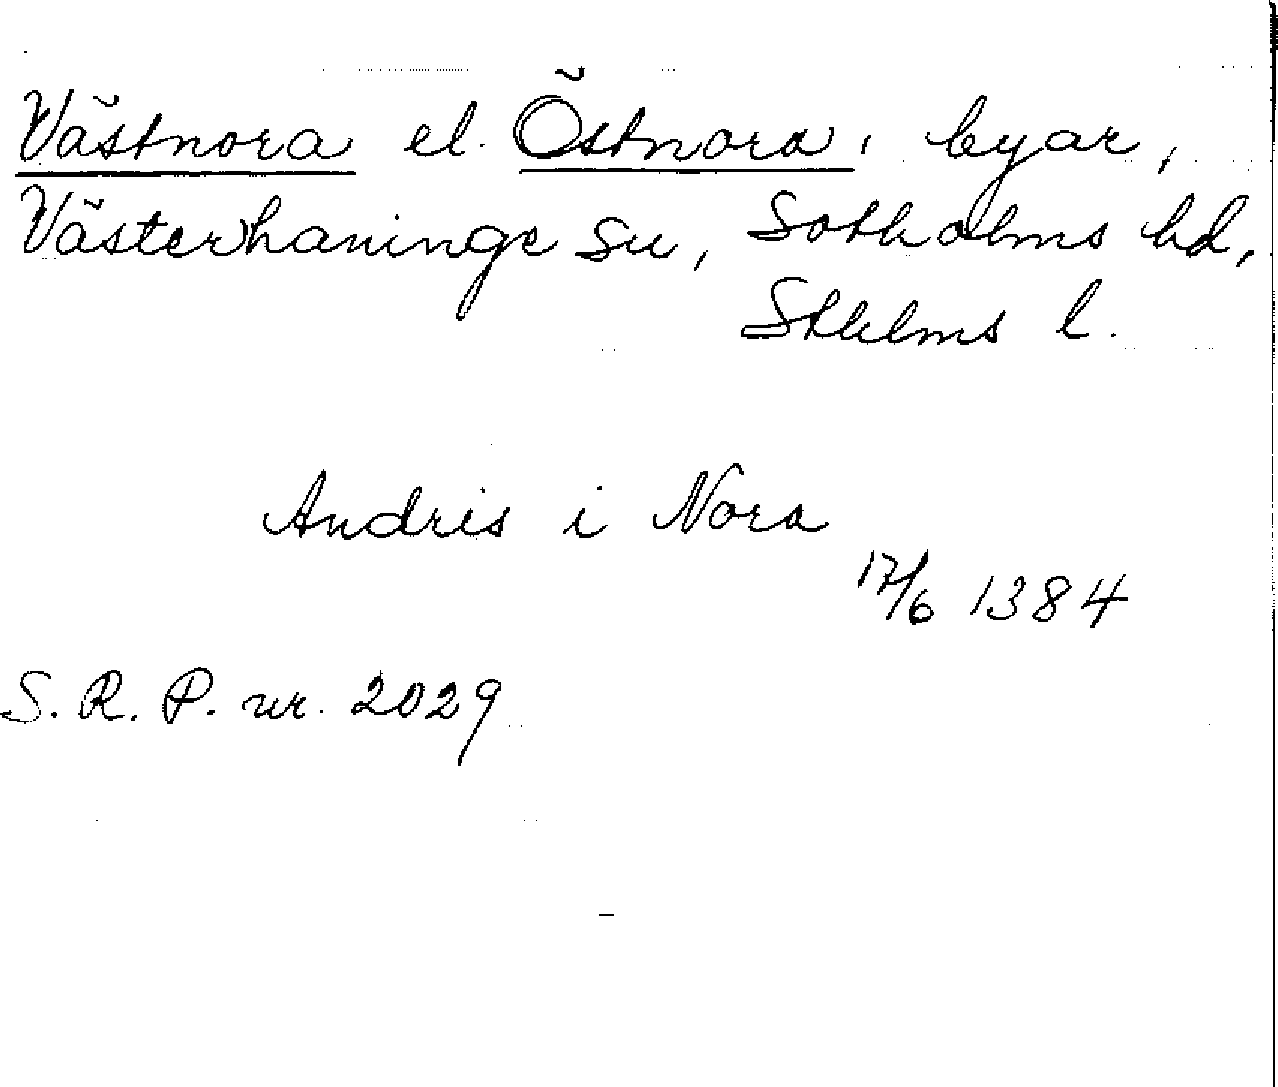 Västnora el. Östnora, byar,
Västerhaninge sn, Sotholms hd,
Sthlms l.
Andris i Nora
17/6 1384
S. R. P. nr. 2029